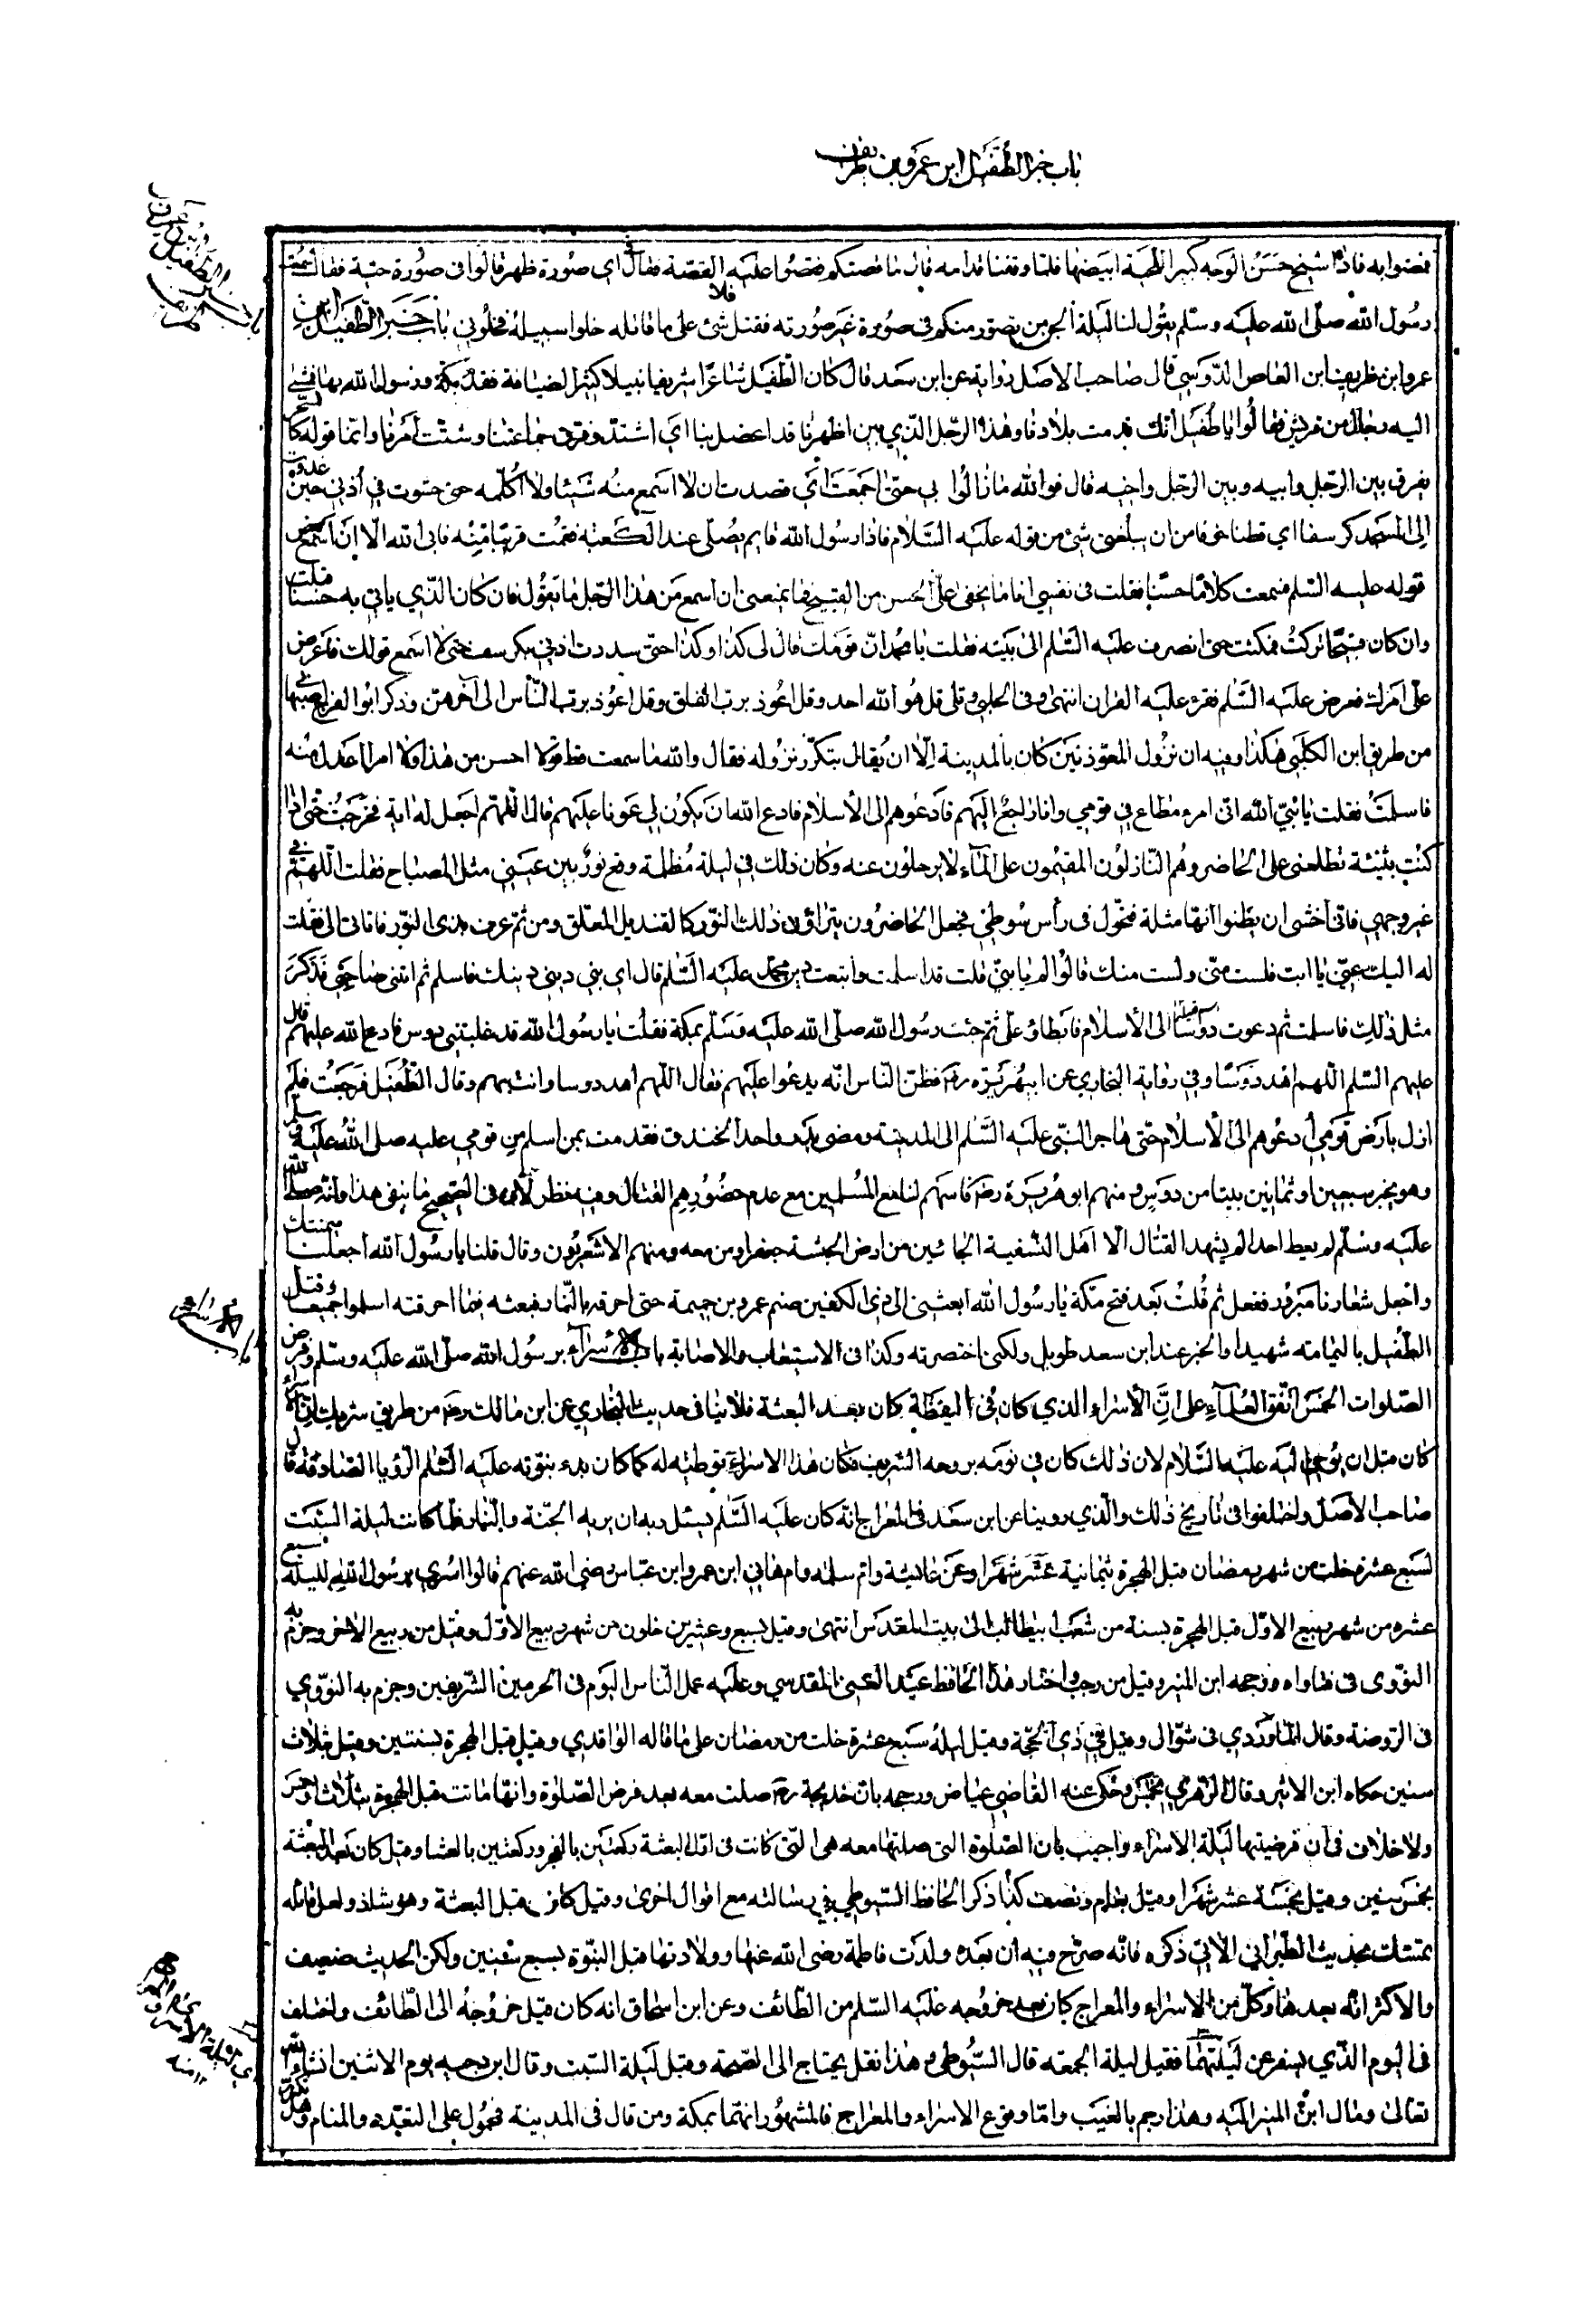 باب خبر الطفيل ابن عمرو بن طريف
فمضوا به فاذا شيخ حَسَنُ الوَجه كبير اللحية ابيضها فلما وقفنا قدامه قال ما قصتكم فقصوا عليه القصة فقال في اي صُورة ظهر قالوا في صُورة حية فقال سمعت
رسُول الله صلّى الله عليه وسلّم يقُول لنا ليلة الجن من تصور منكم في صُورة غير صُورته فقتل فلا شئ على ما قاتله خلوا سبيله فخلوني باب خَبر الطّفيل ابن
عمرو ابن طريف ابن العاص الدَّوسي قال صاحب الاصل رواية عن ابن سعد قال كان الطّفيل شاعرًا شريفا نبيلا كثير الضيافة فقدم مكة ورسول الله بها فمشى
اليه رجال من قريش فقالُوا يا طُفيل انك قدمت بلادنا وهذا الرّجل الذي بين اظهرنا قد اعضل بنا اي اشتد وفرق جماعتنا وشتت امرنا وانما قوله كالسحر
يفرق بين الرّجل وابيه وبين الرّجل واخيه قال فوالله ما زالُوا بي حتى اجمَعتُ اي قصدت ان لا اسمع منهُ شَيئا ولا اُكلّمه حتى حشوت في اُذني حين غدوت
الى المسجد كرسفا اي قطنا خوفا من ان يبلُغني شئ من قوله عليه السّلام فاذا رسُول الله قايم يصُلّى عند الكعبة فقمت قريبًا منِه فابى الله الّا ان اسمع بعض
قوله عليه السّلم فسمعت كلامًا حسنًا فقلت في نفسي انا ما يخفى علّى الحُسن من القبيح فما يمنعنى ان اسمع من هذا الرّجل ما يقُول فان كان الذّي ياتي به حسنا قبلت
وان كان قبيحًا تركتُ فمكثت حتى انصرف عليه السّلم الى بيته فقلت يا محمد انّ قومك قال لي كذا وكذا حتّى سددت اذني بكرسف حتى لا اسمع قولك فاعرض
على امرك فعرض عليه السّلم فقرء عليه القران انتهى وفى الحلبي وتلى قل هُو الله احد وقل اعُوذ برب الفلق وقل اعُوذ برب النّاس الى آخرهن وذكر ابُو الفرج
من طريق ابن الكلبي هكذا وفيه ان نزُول المعوّذتينَ كان بالمدينة الّا ان يُقال بتكرّر نزُوله فقال والله ما سمعت قط قولا احسن من هذا ولا امرا اعدل منه
فاسلمتُ فقلت يا نبيّ الله انّى امرء مطاع في قومي وانا راجعٌ اليهم فادعُوهم الى الأسلام فادع الله ان يكُون لي عونا عليهم قال اللّهمّ اجعل له اية فخرجتُ حتى اذا
كنت بثنية تطلعنى على الحاضر وهُم النّازلُون المقيُمون على المآء لا يرحلون عنه وكان ذلك في ليلة مُظلمة وقع نور بين عينى مثل المصباح فقلت اللّهمّ في
غير وجهي فانّى اخشى ان يظنوا انها مثلة فتحّول فى رأس سُوطي فجعل الحاضرُون يتراؤن ذلك النّور كالقنديل المعلق ومن ثمّ عرف بذى النّور فاتانى ابى فقلت
له اليك عنّى يا ابت فلست منّى ولست منك قال ولم يا بنيّ قلت قد اسلمت واتبعت دين محمّد عليه السّلم قال اي بني ديني دينك فاسلم ثم اتتنى صاحبتي فذكر
مثل ذلك فاسلمت ثم دعوت دوسا الى الأسلام فابطاؤ علّى ثمّ جئت رسُول الله صلّى الله عليه وسَلّم بمكة فقلت يا رسُول الله قد غلبتنى دوس فادع الله عليهم قال
عليهم السّلم اللهم اهد دوسًا وفي رواية البخاري عن ابيهُريرة رضه فظنّ النّاس انّه يدعُوا عليهم فقال اللّهم اهد دوسا وائت بهم وقال الطُّفيل فرجعت فلم
ازل بارض قومي ادعُوهم الى الأسلام حتّى هاجر النبي عليه السّلم الى المدينة ومضى بدر واحد الخندق فقدمت بمن اسلم من قومي عليه صلى اللهُ عليه
وهو بخيبر سبعين او ثمانين بيتا من دوس ومنهم ابو هُريرة رضه فاسهم لنا مع المُسلمين مع عدم حضُورهم القتال وفيه نظر لانه فى الصحيح ما ينفى هذا وانّه صلى الله
عليه وسلّم لم يعط احدا لم يشهد القتال الا اهل السّفينة الجائين من ارض الحبشة جعفرا ومن معه ومنهم الاشعريُون وقال قلنا يا رسُول الله اجعلنا ميمنتك
واجعل شعارنا مبرور ففعل ثم قُلتُ بعد فتح مكّة يا رسُول الله ابعثنى الى ذى الكفين صنم عمرو بن حممة حتى احرقه بالنّار فبعثه فلما احرقته اسلموا جميعا وقتل
الطّفيل باليمامة شهيدا والخبر عند ابن سعد طويل ولكنى اختصرته وكذا فى الاستيعاب والاصابة باب الاسرآء برسُول الله صلّى الله عليه وسلّم وفرض
الصّلوات الخمس اتّفق العُلمآء على انَّ الأسراء الذي كان فى اليقظة كان بعد البعثة فلا ينافى حديث البخاري عن ابن مالك رضه من طريق شريك ان الاسراء
كان قبل ان يُوحى اليه عليه السّلام لان ذلك كان في نومه بروحه الشريف فكان هذا الاسراء توطئه له كما كان بدء نبوّته عليه السّلم الرّؤيا الصّادقة قال
صاحب الأصل واختلفوا فى تاريخ ذلك والّذي روينا عن ابن سعد فى المعراج انّه كان عليه السّلم يسئل ربه ان يريه الجنّة والنّار فلما كانت ليلة السّبت
لسبع عشرة خلت من شهر رمضان قبل الهجرة بثمانية عشر شهرا وعن عايشة وام سلمه وام هاني ابن عمر وابن عبّاس رضي الله عنهم قالوا اسُري برسُول الله ليلة سبع
عشره من شهر ربيع الاوّل قبل الهجرة بسنة من شعب ابيطالب الى بيت المقدس انتهى وقيل بسبع وعشرين خلون من شهر ربيع الاوّل وقيل من ربيع الاخر وجزم به
النوّوى فى فتاواه ورجحه ابن المنير وقيل من رجب واختار هذا الحافظ عبد الغنى المقدسي وعليه عمل النّاس اليوم فى الحرمين الشّريفين وجزم به النوّوي
فى الرّوضة وقال الماوردي فى شوّال وقيل في ذى الحجّة وقيل ليلة سبع عشرة خلت من رمضان على ما قاله الواقدي وقيل قبل الهجرة بسنتين وقيل بثلاث
سنين حكاه ابن الاثير وقال الزّهري بخمس وحكى عنه القاضي عياض ورجحه بان خديجة رضه صلت معه بعد فرض الصّلوة وانّها ماتت قبل الهجرة بثلاث او خمس
ولا خلاف فى ان فرضيتها ليلة الاسراء واجيب بان الصّلوة التى صلتها معه هى الّتى كانت فى اوّل البعثة ركعتين بالفجر وركعتين بالعشا وقيل كان بعد البعثة
بخمس سنين وقيل بخمسة عشر شهرا وقيل بعام ونصف كذا ذكر الحافظ السّيوطي في رسالته مع اقوال اخرى وقيل كان قبل البعثة وهو شاذ ولعل قائله
يتمسك بحديث الطّبراني الأتي ذكره فانّه صرّح فيه ان بعده ولدت فاطمة رضى الله عنها وولادتها قبل النبّوة بسبع سنين ولكن الحديث ضعيف
والاكثر انّه بعدها وكلّ من الاسراء والمعراج كان بعد خروُجه عليه السّلم من الطّائف وعن ابن اسحاق انه كان قبل خروُجه الى الطّائف واختلف
فى اليوم الذّي يسفر عن ليلتهما فقيل ليلة الجمعه قال السّيُوطي وهذا نقل يحتاج الى الصّحة وقيل ليلة السّبت وقال ابن دحيه يوم الاثنين انشاء الله
تعالى ومال ابن المنير اليه وهذا رجم بالغيب وامّا وقوع الاسراء والمعراج فالمشهُور انهّما بمكة ومن قال فى المدينة فمحمُول على التعدّد والمنام وهل تكرر